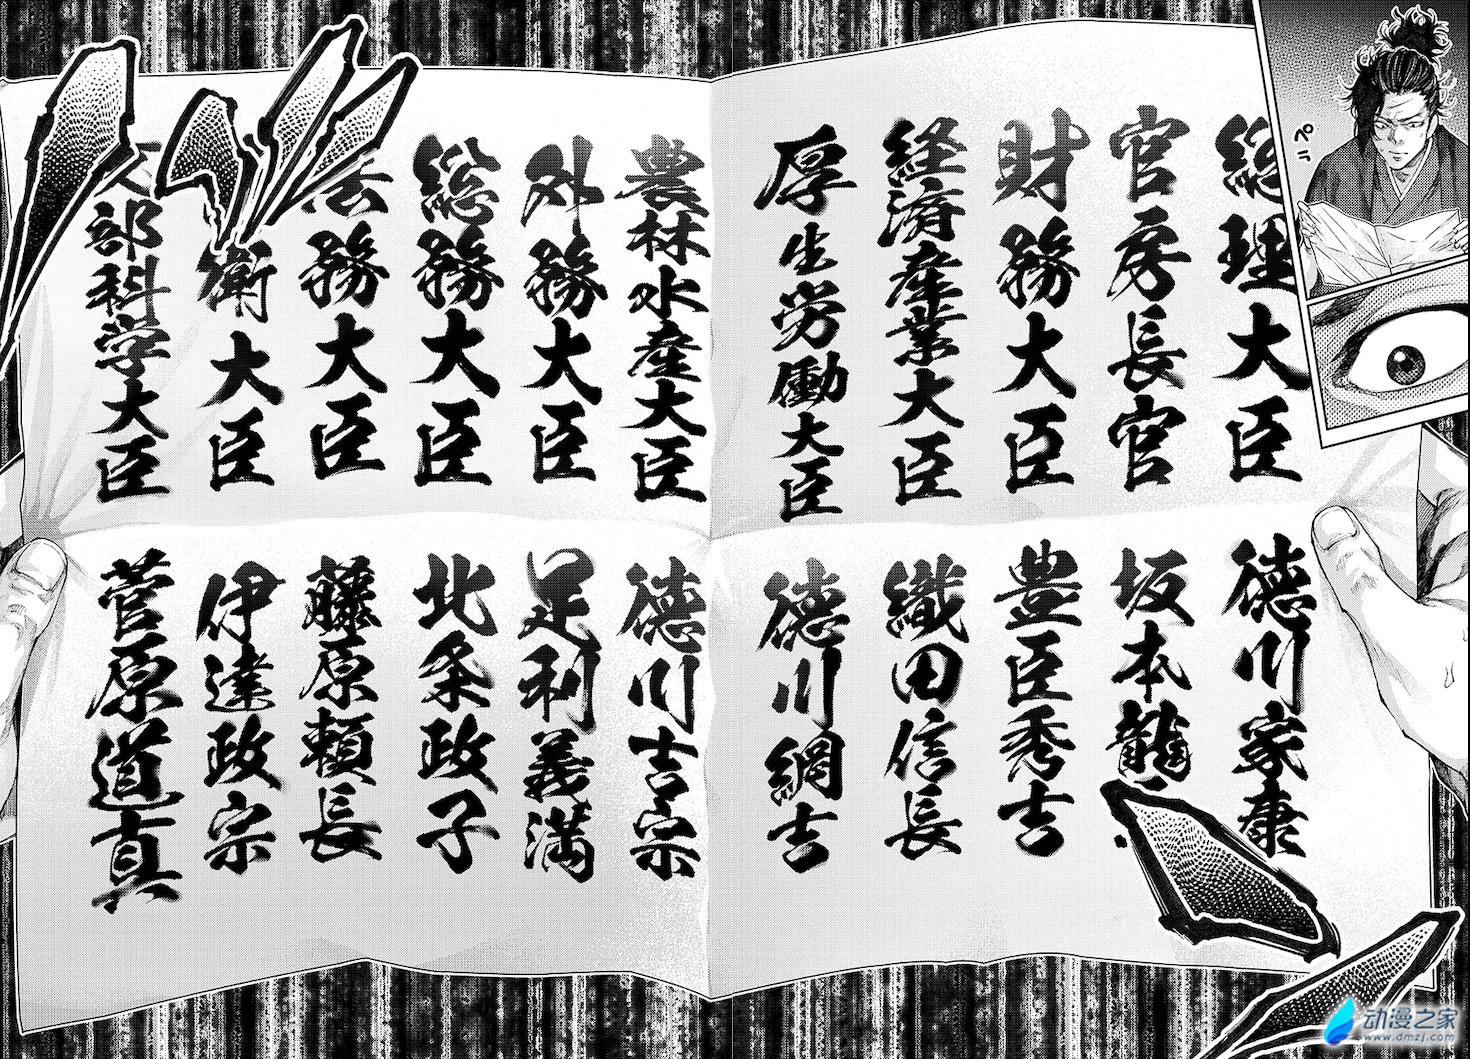 ペ
総理大臣
徳川家康
官房長官
坂本龍
財務大臣
豊臣秀吉
経済産業大臣
織田信長
厚生労働大臣
徳川綱吉
農林水産大臣
徳川吉宗
外務大臣
足利義満
総務大臣
北条政子
法務大臣
藤原頼長
衛大臣
伊達政宗
部科学大臣
菅原道真
动漫之家
www.dmzj.com